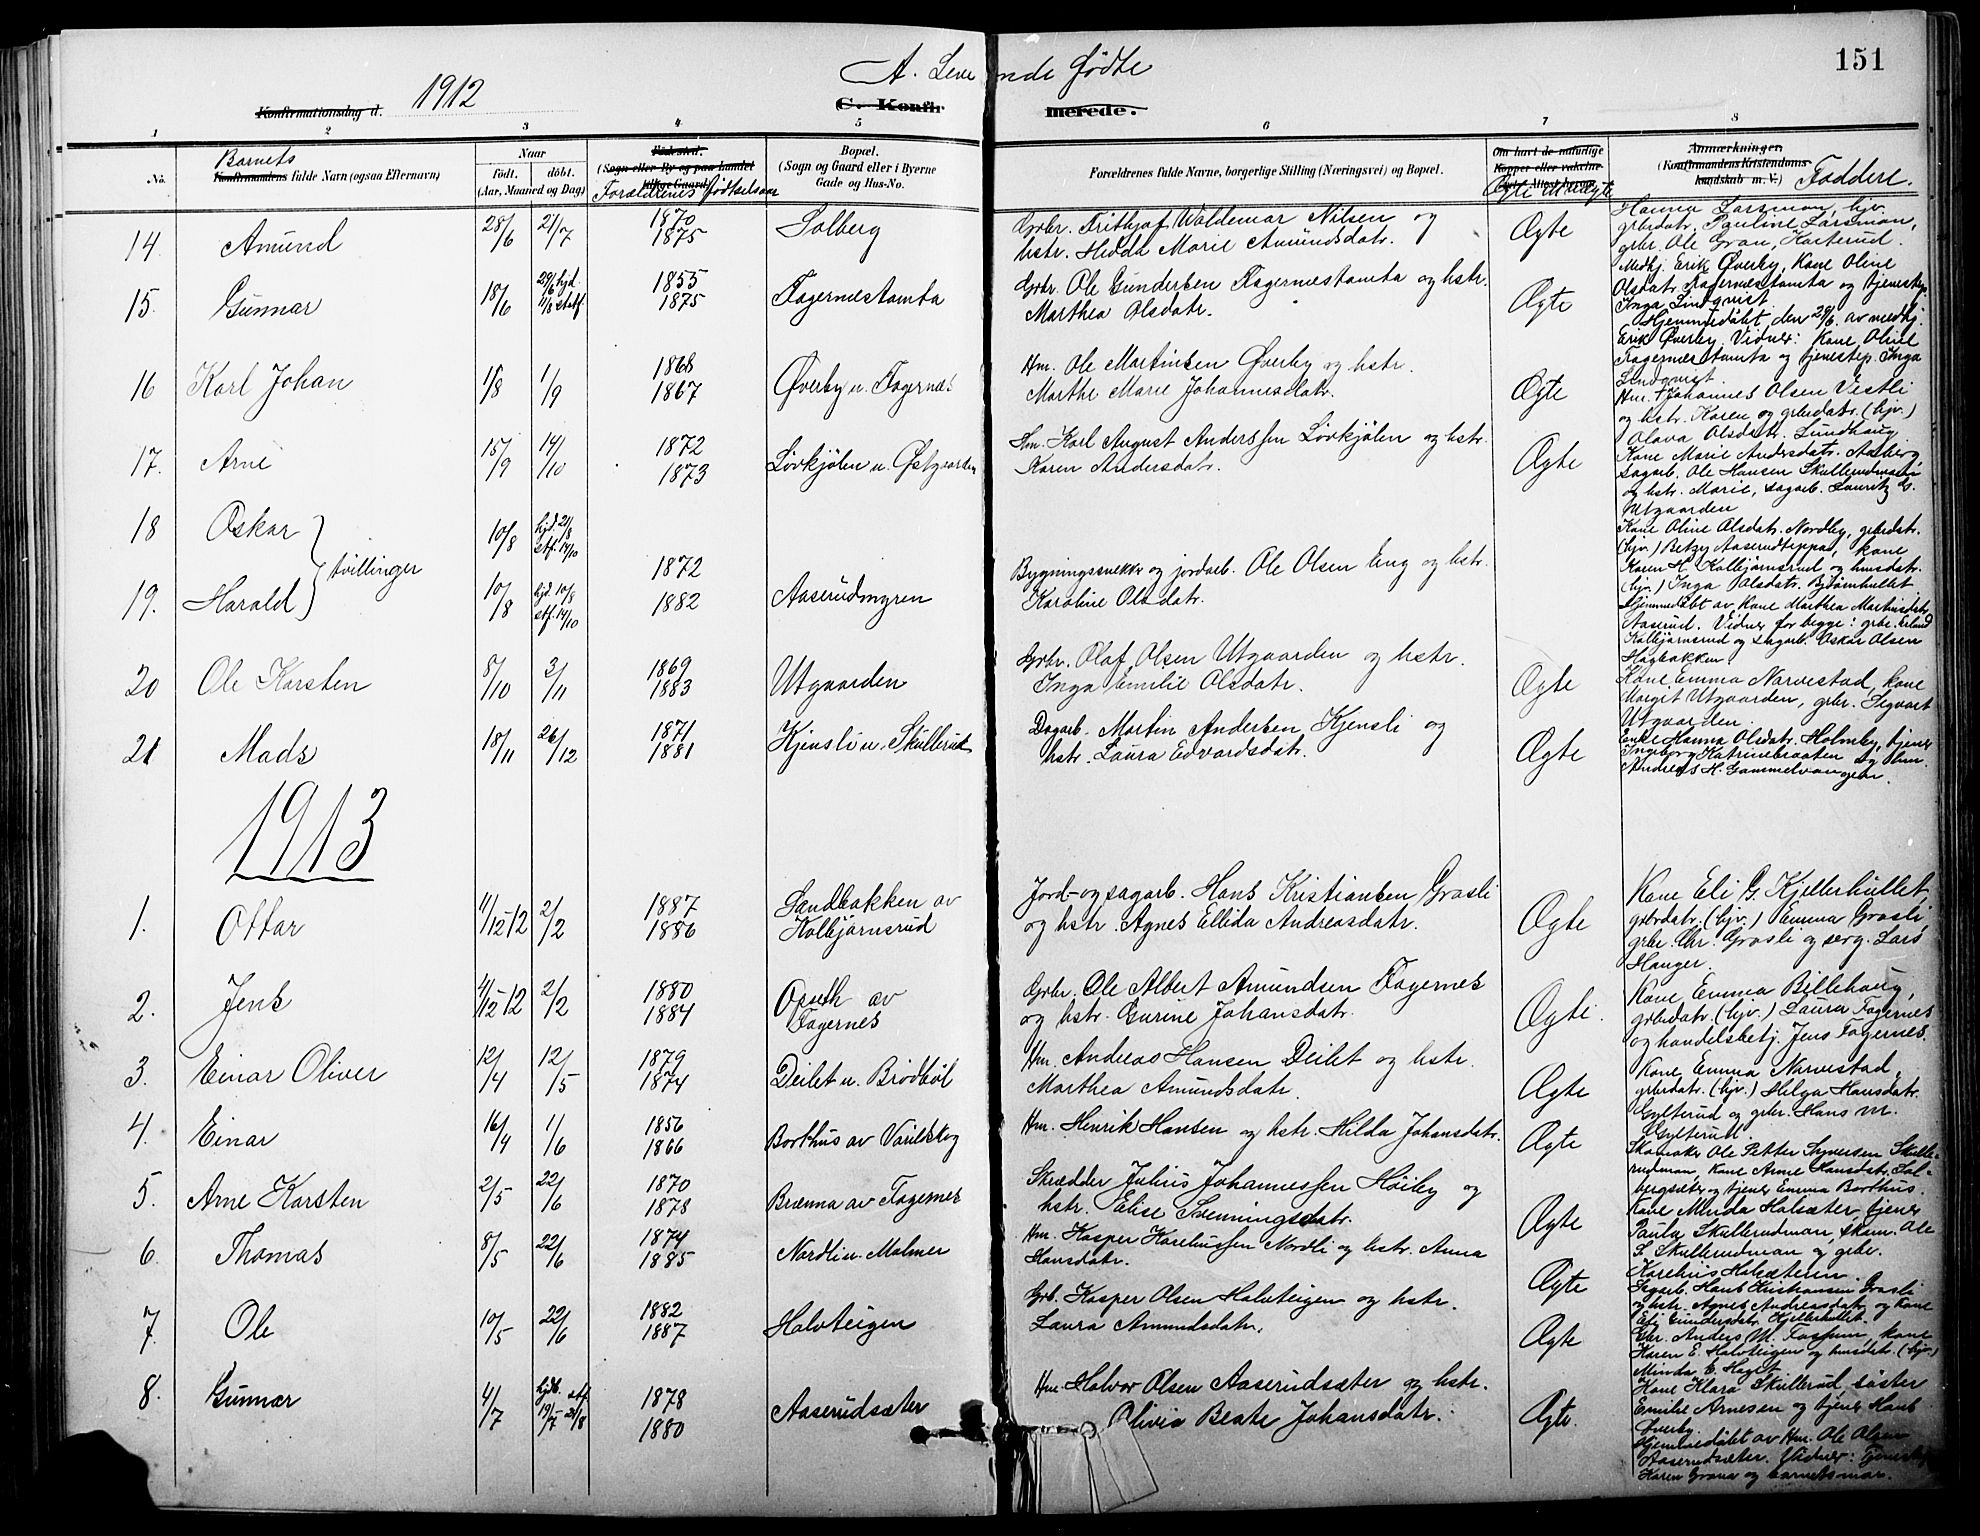 151
A. Levende fødte
1912
Konfirmationsdag d.
C. Konfirmerede.
1 2 3 4 5 6 7 8
No.
Barnets
Konfirmandens fulde Navn (ogsaa Efternavn)
Naar
født. døbt.
(Aar, Maaned og Dag)
Fødested.
(Sogn eller By og paa Landet
tillige Gaard)
Forældrenes fødselsaar
Bopæl.
(Sogn og Gaard eller i Byerne
Gade og Hus-No.
Forældrenes fulde Navne, borgerlige Stilling (Næringsvei) og Bopæl.
Om havt de naturlige
Kopper eller vakcine-
Ægte uægte
Anmærkninger.
(Konfirmandens Kristendoms-
kundskab m. V.)
Faddere.
14 Amund 28/6 21/7 1870 1875 Solberg
Grbr. Frithjof Waldemar Nilsen og
hstr. Hedda Marie Amundsdatr.
Ægte
Hanna Larsmon, hjv.
grbrdatr. Pauline Larsmon,
grbr. Ole Gran, Harterud.
15. Gunnar 18/6 29/6 hjd. 11/8 stadf. 1855 1875 Fagernestomta
Grbr. Ole Gundersen Fagernestomta og hstr.
Marthea Olsdatr.
Ægte
Medhj. Erik Øverby, Kone Oline
Olsdatr. Fagernestomta og tjenestep.
Inga Lindqvist.
Hjemmedøbt den 29/6 av medhj.
Erik Øverby. Vidner: Kone Oline
Fagernestomta og tjenestep. Inga
Lindqvist.
16 Karl Johan 1/8 1/9 1868 1867 Øverby u. Fagernes
Hm. Ole Martinsen Øverby og hstr.
Marthe Marie Johannesdatr.
Ægte
Hm. Johannes Olsen Vestli
og hstr. Karen og grbrdatr. (hjv.)
Olava Olsdatr. Lundhaug
17. Arne 15/9 14/10 1872 1873 Lövkjölen u. Østgaarden
Hm. Karl August Anderssen Lövkjölen og hstr.
Karen Andersdatr.
Ægte
Kone Marie Andrsdatr. Aasberg
sagarb. Ole Hansen Skullerudmoen
og hstr. Marie, sagarb. Lauritz G.
Utgaarden
18 Oskar 10/8 hjd. 21/8 stf. 14/10
tvillinger
19. Harald 10/8 hjd. 10/8 stf. 14/10 1872 1882 Aaserudmyren
Bygningssnekkr og jordarb. Ole Olsen Eng og hstr.
Karoline Olsdatr.
Kone Oline Olsdatr. Nordby, grbrdatr.
(hjv.) Betzy Aaserudteppa, kone
Karen H. Kolbjørnsrud og husdatr.
(hjv.) Inga Olsdatr. Bjørnhullet
Hjemmedøbt av kone Marthea Martinsdatr.
Aaserud. Vidner for begge: grbr. Erland
Kolbjørnsrud og sagarb. Oskar Olsen
Hagbakken
20 Ole Karsten 8/10 3/11 1869 1883 Utgaarden
Grbr. Olaf Olsen Utgaarden og hstr.
Inga Emilie Olsdatr.
Ægte
Kone Emma Narvestad, kone
Margit Utgaarden, grbr. Segvart
Utgaarden.
21 Mads 18/11 26/12 1871 1881 Kjensli u. Skullerud
Dagarb. Martin Andersen Kjensli og
hstr. Laura Edvardsdatr.
Ægte
Enke Hanna Olsdatr. Holmby, tjener
Ingeborg Katrinebraaten og hm.
Andreas H. Gammelvanger.
1913
1. Ottar 11/12 12 2/2 1887 1886 Sandbakken av
Kolbjørnsrud
Jord- og sagarb. Hans Kristiansen Grasli
og hstr. Agnes Ellida Andreasdatr.
Ægte
Kone Eli G. Kjellerhullet,
grbrdatr. (hjv.) Emma Grasli,
grbr. Chr. Grasli og serg. Lars
Hanger.
2. Jens 4/12 12 2/2 1880 1884 Opseth av
Fagernes
Grbr. Ole Albert Amundsen Fagernes
og hstr. Gurine Johansdatr.
Ægte.
Kone Emma Billehaug,
grbrdatr. (hjv.) Laura Fagernes
og handelsbetj. Jens Fagernes.
3. Einar Oliver 12/4 12/5 1879 1874 Deilet u. Brødbøl
Hm. Andreas Hansen Deilet og hstr.
Marthea Amundsdatr.
Ægte
Kone Emma Narvestad,
grbrdatr. (hjv.) Helga Hansdatr.
Gylterud og grbr. Hans M.
Gylterud.
4. Einar 16/4 1/6 1856 1866 Borthus av Varildskog
Hm. Henrik Hansen og hstr. Hilda Johansdatr.
Ægte
Skomaker Ole Petter Synersen Skulle-
rudmoen, Kone Anne Hansdatr. Sol-
bergsæter og tjener Emma Borthus.
5. Arne Karsten 2/5 22/6 1870 1878 Brænna av Fagernes
Skrædder Julius Johannessen Høiby og
hstr. Elise Svenningsdatr.
Ægte
Kone Minda Holsæter, tjener
Paula Skullerudmoen, skom. Ole
S. Skullerudmoen og grbr.
Karelius Holsæteren.
6. Thomas 8/5 22/6 1874 1885 Nordli u. Malmer
Hm. Kasper Kareliussen Nordli og hstr. Anna
Hansdatr.
Ægte
Sagarb. Hans Kristiansen Grasli
og hstr. Agnes Andreasdatr. og Kone
Eli Gundersdatr. Kjellerhullet.
7. Ole 10/5 22/6 1882 1887 Halvteigen
Grb. Kasper Olsen Halvteigen og hstr.
Laura Amundsdatr.
Ægte
Gbr. Anders M. Fossum, kone
Karen E. Halvteigen og husdatr. (hjv.)
Minda E. Haget
8. Gunnar 4/7 hjdb. 19/7 stf. 21/8 1878 1880 Aaserudsæter
Hm. Halvor Olsen Aaserudsæter og hstr.
Olivia Beate Johansdatr.
Ægte.
Kone Klara Skullerud, søster
Emilie Arnesen og tjener Hans
Øverby.
Hjemmedøbt av Hm. Ole Olsen
Aaserudsæter. Vidner: Tjenestep.
Karen Grana og barnets mor.